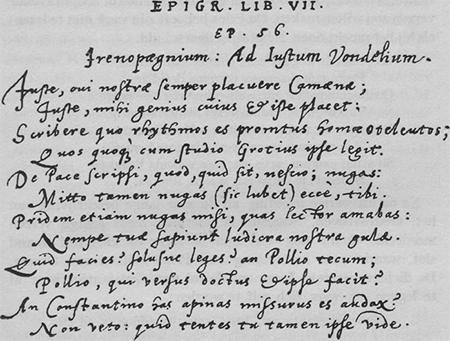 EPIGR. LIB. VII.
EP. 56.
Irenopægnium: Ad Iustum Vondelium.
Juste, cui nostræ semper placuere Camænæ;
Juste, mihi genius cuius & iste placet:
Scribere quo rhythmos es promtus homæoteleutos;
Quos quoque cum studio Grotius ipse legit.
De Pace scripsi, quod, quid sit, nescio; nugas:
Mitto tamen nugas (sic lubet) eccè, tibi.
Pridem etiam nugas misi, quas lector amabas:
Nempe tuæ sapiunt ludicra nostra gulæ.
Quid facies? solusne leges? an Pollio tecum;
Pollio, qui versus doctus & ipse facit?
An Constantino has apinas missurus es audax?
Non veto: quid tentes tu tamen ipse vide.